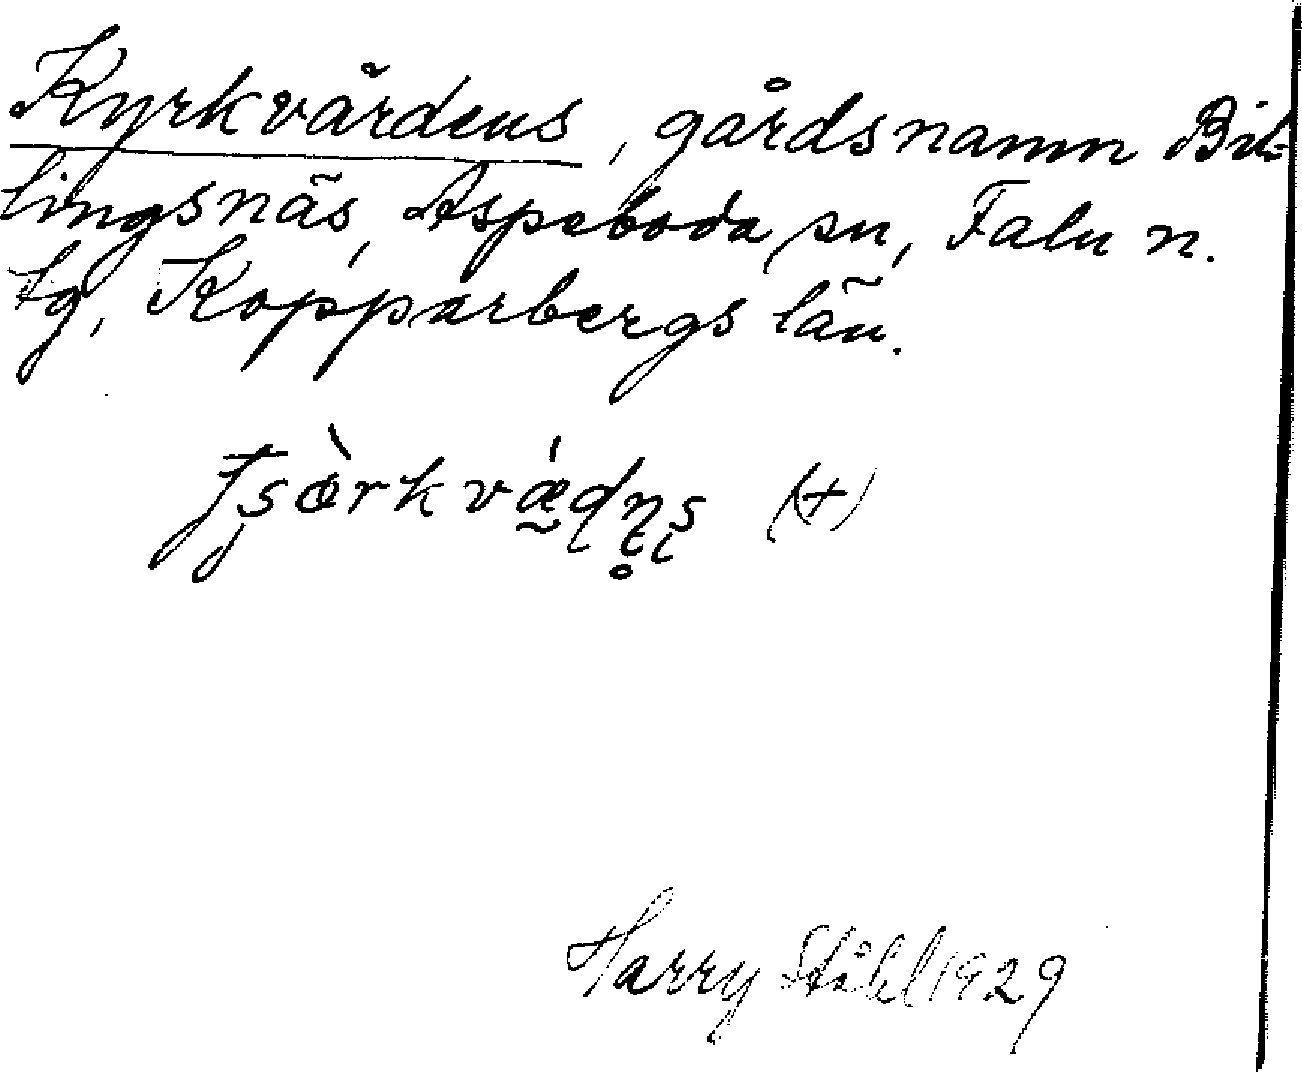 Kyrkvärdens, gårdsnamn Bil-
lingsnäs, Aspeboda sn, Falu n.
tg, Kopparbergs län.
(+)
Harry Ståhl 1929